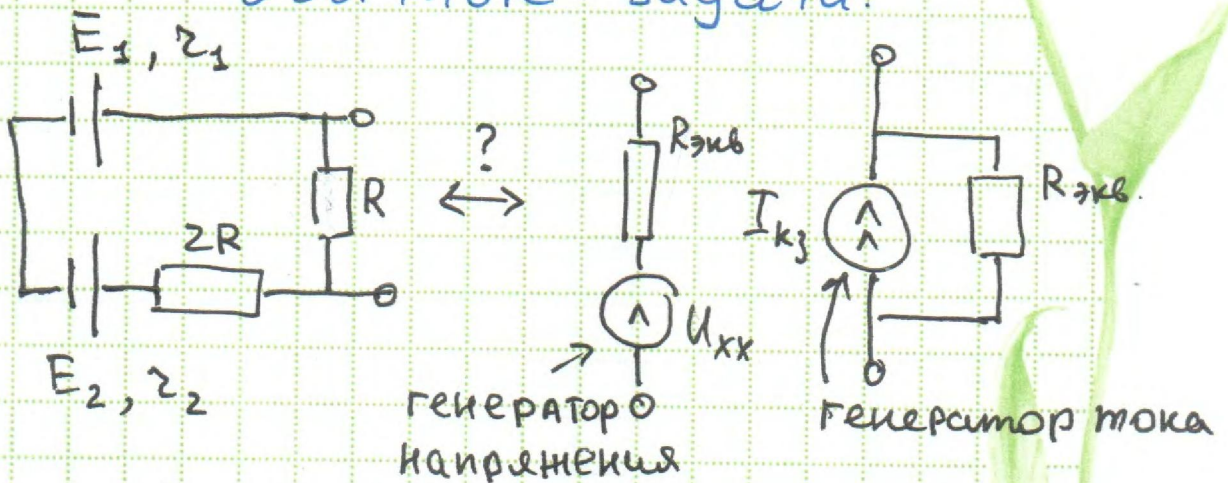 E₁, r₁
R
2R
E₂, r₂
?
Rэкв
Uхх
генератор
напряжения
Iкз
Rэкв.
генератор тока